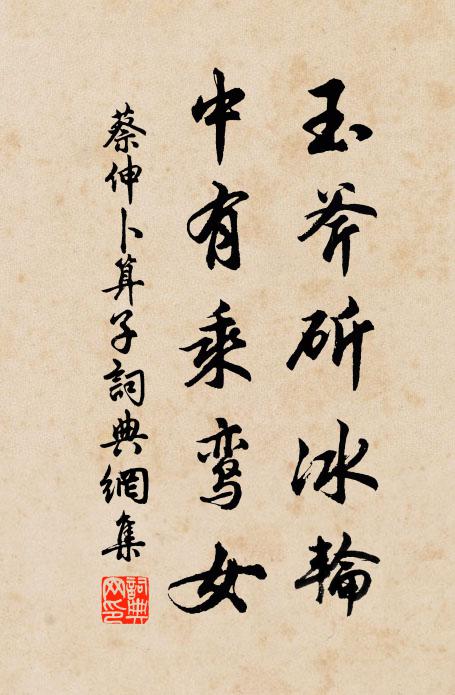 玉斧斫冰輪
中有乘鸾女
蔡伸卜算子詞典網集
詞典網印